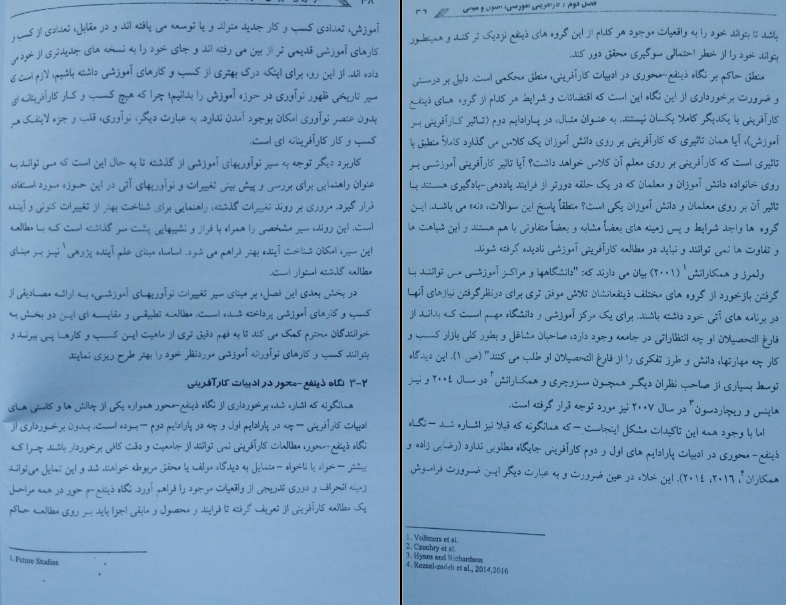 ۳۸
آموزش، تعدادی کسب و کار جدید متولد و یا توسعه می یافته اند و در مقابل، تعدادی از کسب و
کارهای آموزشی قدیمی تر از بین می رفته اند و جای خود را به نسخه های جدیدتری از خود می
داده اند. از این رو، برای اینکه درک بهتری از کسب و کارهای آموزشی داشته باشیم، لازم است ی
سیر تاریخی ظهور نوآوری در حوزه آموزش را بدانیم؛ چرا که هیچ کسب و کار کارآفرینانه ای
بدون عنصر نوآوری امکان بوجود آمدن ندارد. به عبارت دیگر، نوآوری، قلب و جزء لاینفک هر
کسب و کار کارآفرینانه ای است.
کاربرد دیگر توجه به سیر نوآوریهای آموزشی از گذشته تا به حال این است که می تواند به
عنوان راهنمایی برای بررسی و پیش بینی تغییرات و نوآوریهای آتی در این حوزه مورد استفاده
قرار گیرد. مروری بر روند تغییرات گذشته، راهنمایی برای شناخت بهتر از تغییرات کنونی و آینده
است. این روند، سیر مشخصی را همراه با فراز و نشیبهایی پشت سر گذاشته است که با مطالعه
این سیر، امکان شناخت آینده بهتر فراهم می شود. اساسا، مبنای علم آینده پژوهی۱ نیز بر مبنای
مطالعه گذشته استوار است.
در بخش بعدی این فصل، بر مبنای سیر تغییرات نوآوریهای آموزشی، به ارائه مصادیقی از
کسب و کارهای آموزشی پرداخته شده است. مطالعه تطبیقی و مقایسه ای این دو بخش به
خوانندگان محترم کمک می کند تا به فهم دقیق تری از ماهیت این کسب و کارها پی ببرند و
بتوانند کسب و کارهای نوآورانه آموزشی موردنظر خود را بهتر طرح ریزی نمایند
۲-۳ نگاه ذینفع-محور در ادبیات کارآفرینی
همانگونه که اشاره شد، برخورداری از نگاه ذینفع-محور همواره یکی از چالش ها و کاستی های
ادبیات کارآفرینی – چه در پارادایم اول و چه در پارادایم دوم – بوده است. بدون برخورداری از
نگاه ذینفع-محور، مطالعات کارآفرینی نمی توانند از جامعیت و دقت کافی برخوردار باشند چرا که
بیشتر – خواه یا ناخواه – متمایل به دیدگاه مولف یا محقق مربوطه خواهند شد و این تمایل می‌تواند
زمینه انحراف و دوری تدریجی از واقعیات موجود را فراهم آورد. نگاه ذینفع-م حور در همه مراحل
یک مطالعه کارآفرینی از تعریف گرفته تا فرایند و محصول و مابقی اجزا باید بر روی مطالعه حاکم
1. Future Studies
فصل دوم / کارآفرینی آموزشی، اصول و مبانی
باشد تا بتواند خود را به واقعیات موجود هر کدام از این گروه های ذینفع نزدیک تر کند و همینطور
بتواند خود را از خطر احتمالی سوگیری محقق دور کند.
منطق حاکم بر نگاه ذینفع-محوری در ادبیات کارآفرینی، منطق محکمی است. دلیل بر درستی
و ضرورت برخورداری از این نگاه این است که اقتضائات و شرایط هر کدام از گروه های ذینفع
کارآفرینی با یکدیگر کاملا یکسان نیستند. به عنوان مثال، در پارادایم دوم (تاثیر کارآفرینی بر
آموزش)، آیا همان تاثیری که کارآفرینی بر روی دانش آموزان یک کلاس می گذارد کاملاً منطبق با
تاثیری است که کارآفرینی بر روی معلم آن کلاس خواهد داشت؟ آیا تاثیر کارآفرینی آموزشی بر
روی خانواده دانش آموزان و معلمان که در یک حلقه دورتر از فرایند یاددهی-یادگیری هستند با
تاثیر آن بر روی معلمان و دانش آموزان یکی است؟ منطقاً پاسخ این سوالات، «نه» می باشد. این
گروه ها واجد شرایط و پس زمینه های بعضاً مشابه و بعضاً متفاوتی با هم هستند و این شباهت ها
و تفاوت ها نمی توانند و نباید در مطالعه کارآفرینی آموزشی نادیده گرفته شوند.
ولمرز و همکارانش۱ (۲۰۰۱) بیان می دارند که: "دانشگاهها و مراکز آموزشی می توانند با
گرفتن بازخورد از گروه های مختلف ذینفعانشان تلاش موفق تری برای درنظرگرفتن نیازهای آنها
در برنامه های آتی خود داشته باشند. برای یک مرکز آموزشی و دانشگاه مهم است که بدانند از
فارغ التحصیلان او چه انتظاراتی در جامعه وجود دارد، صاحبان مشاغل و بطور کلی بازار کسب و
کار چه مهارتها، دانش و طرز تفکری را از فارغ التحصیلان او طلب می کنند" (ص ۱). این دیدگاه
توسط بسیاری از صاحب نظران دیگر همچون سزوچری و همکارانش۲ در سال ۲۰۰۴ و نیز
هاینس و ریچاردسون۳ در سال ۲۰۰۷ نیز مورد توجه قرار گرفته است.
اما با وجود همه این تاکیدات مشکل اینجاست – که همانگونه که قبلا نیز اشاره شد – نگاه
ذینفع- محوری در ادبیات پارادایم های اول و دوم کارآفرینی جایگاه مطلوبی ندارد (رضایی زاده و
همکاران۴، ۲۰۱۶، ۲۰۱۴). این خلاء در عین ضرورت و به عبارت دیگر این ضرورت فراموش
1. Vollmers et al.
2. Czuchry et al.
3. Hynes and Richardson
4. Rezaei-zadeh et al., 2014,2016